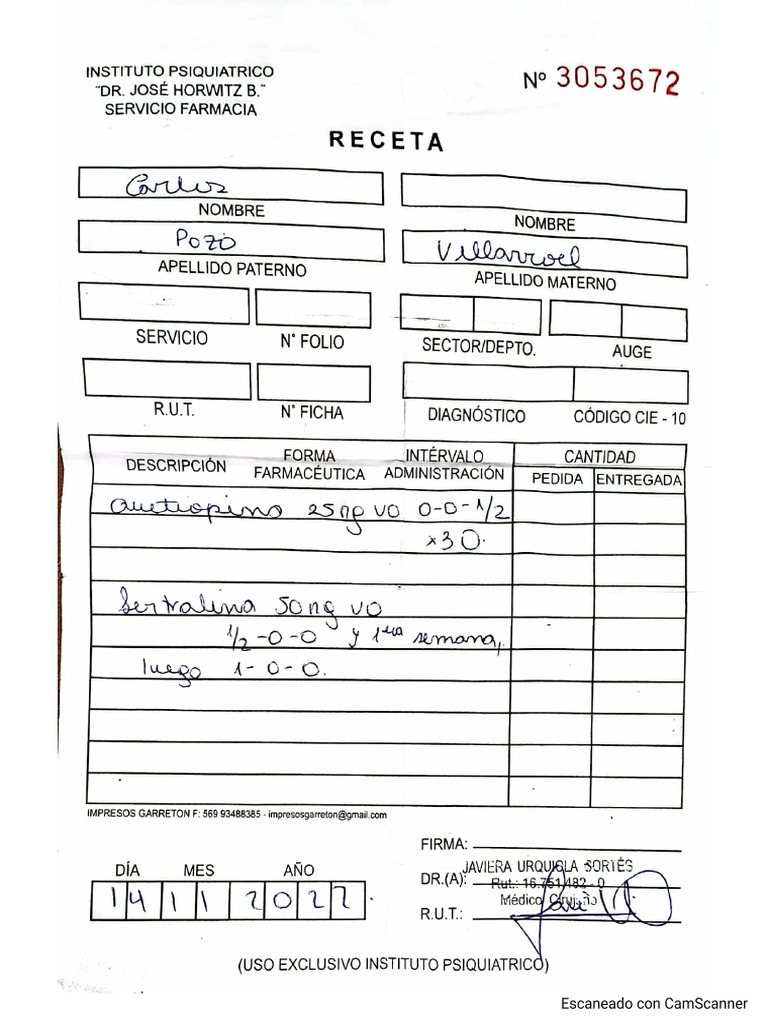 INSTITUTO PSIQUIATRICO
"DR. JOSÉ HORWITZ B."
SERVICIO FARMACIA
Nº 3053672
RECETA
Carlos
NOMBRE
NOMBRE
Pozo
APELLIDO PATERNO
Villarroel
APELLIDO MATERNO
SERVICIO
N° FOLIO
SECTOR/DEPTO.
AUGE
R.U.T.
N° FICHA
DIAGNÓSTICO
CÓDIGO CIE - 10
DESCRIPCIÓN
FORMA FARMACÉUTICA
INTÉRVALO ADMINISTRACIÓN
CANTIDAD
PEDIDA
ENTREGADA
Quetiapina 25mg VO 0-0-1/2
x30.
Sertralina 50mg VO
1/2-0-0 y 1era semana,
luego 1-0-0.
IMPRESOS GARRETON F: 569 93488385 - impresosgarreton@gmail.com
FIRMA:
DR.(A):
JAVIERA URQUIOLA SORTÉS
Rut.: 16.751.482 - 0
Médico Cirujano
R.U.T.:
DÍA MES AÑO
14 11 2022
(USO EXCLUSIVO INSTITUTO PSIQUIATRICO)
Escaneado con CamScanner